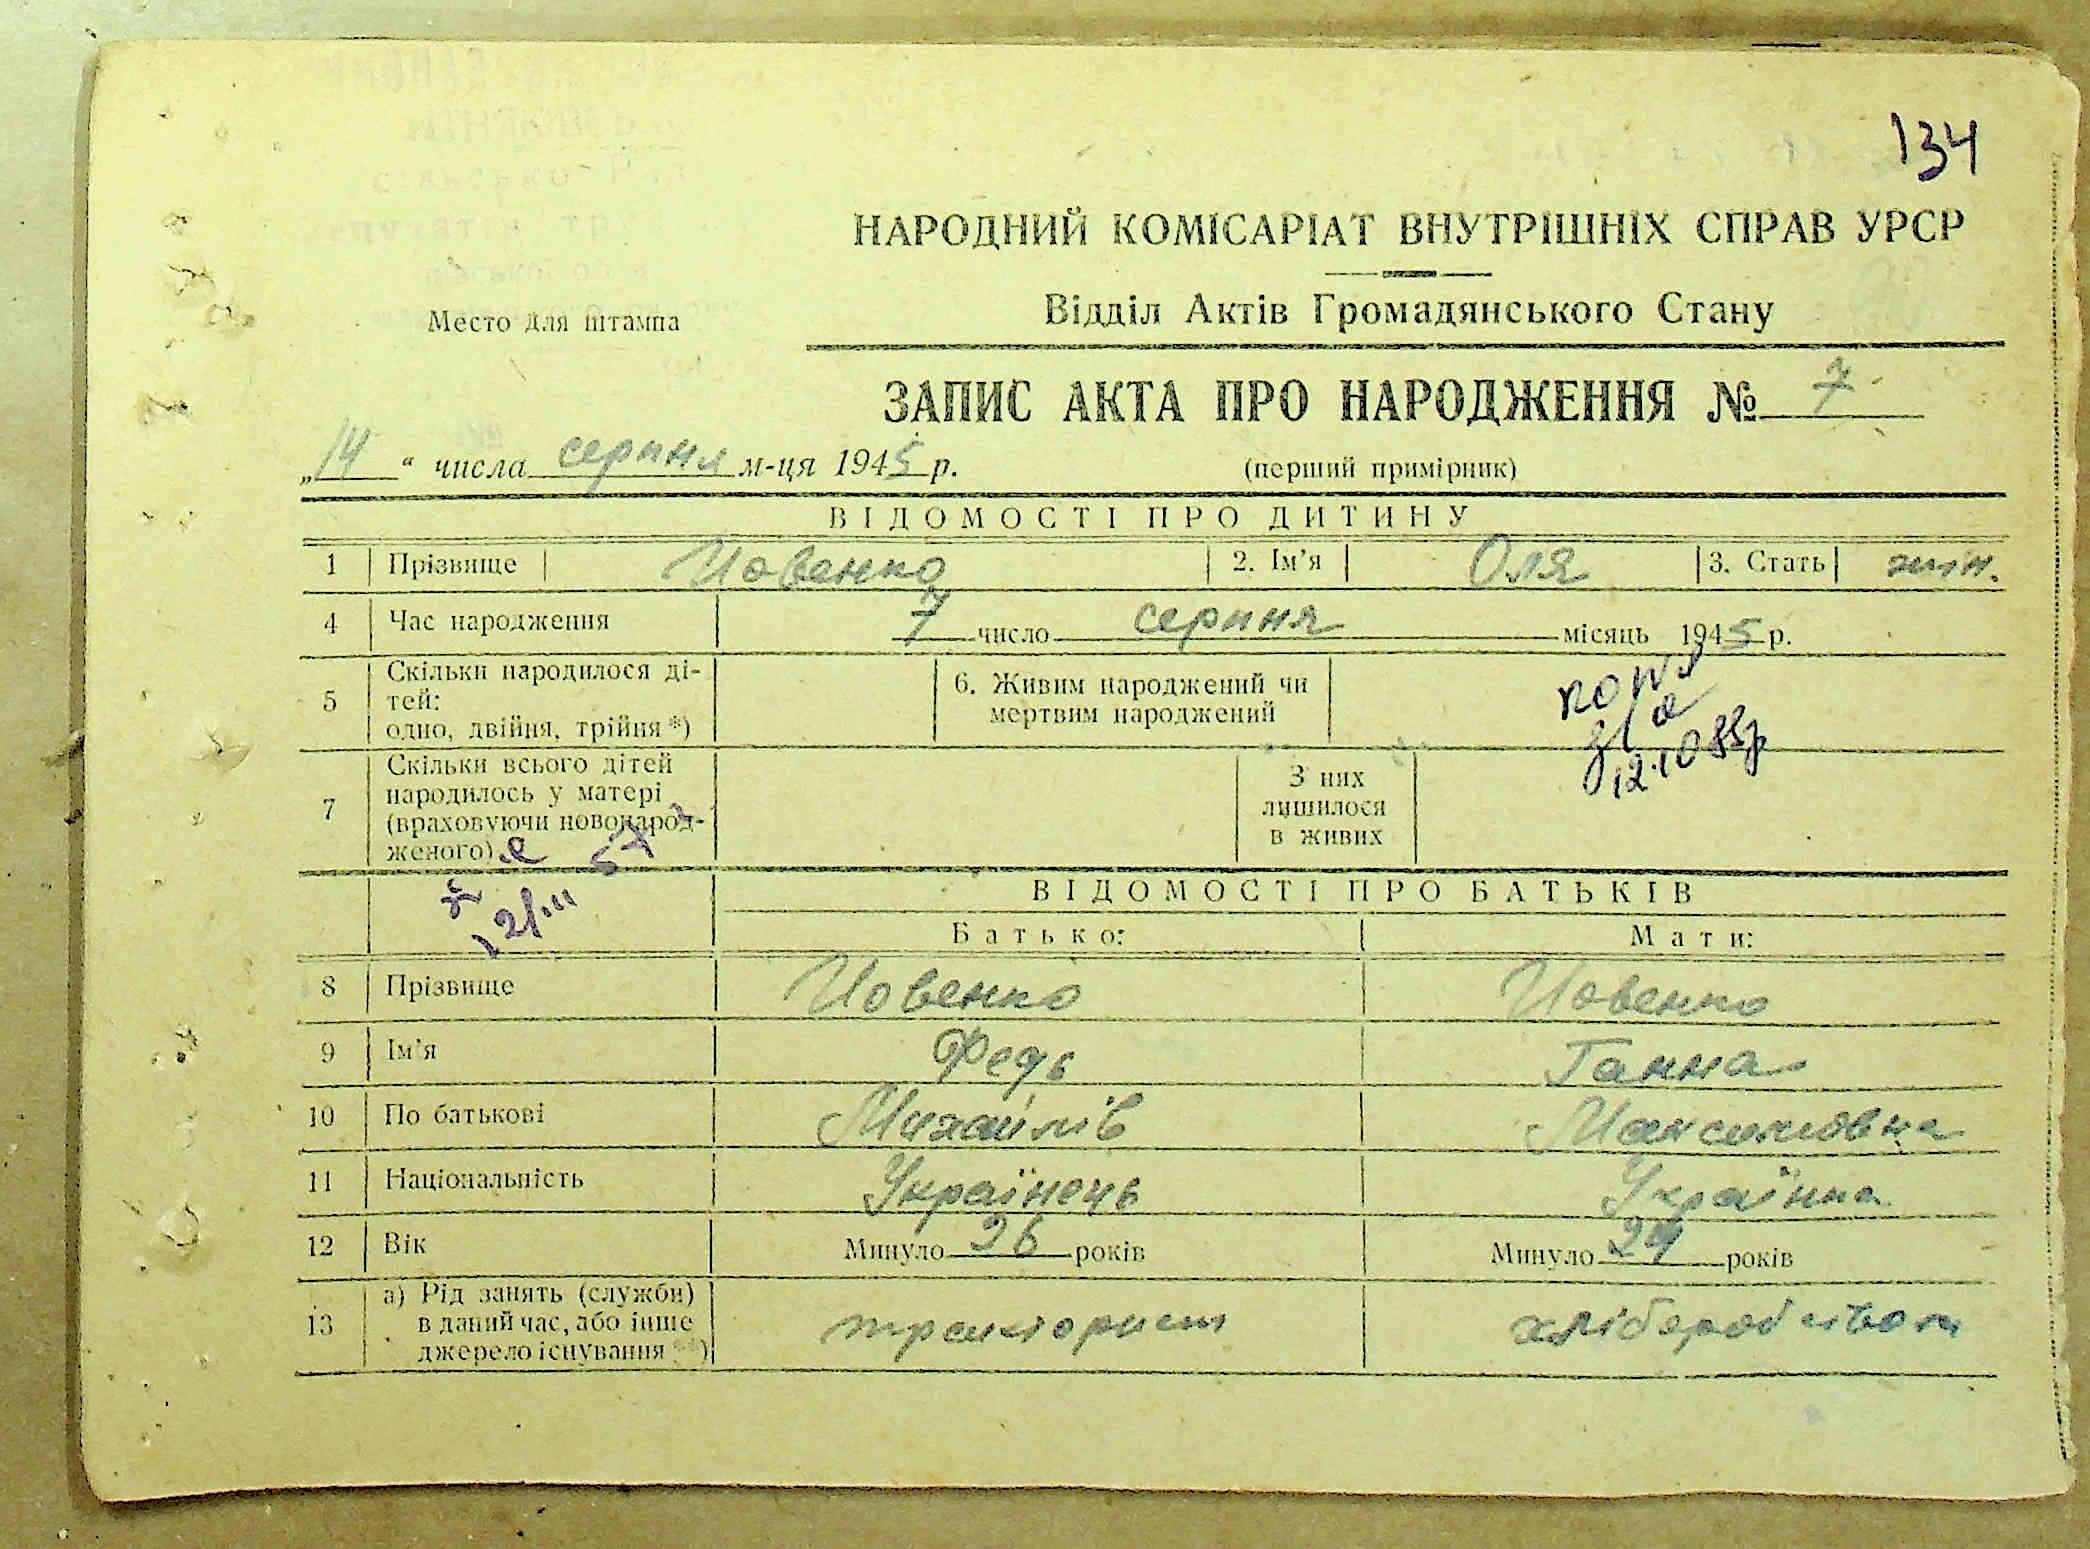 134
НАРОДНИЙ КОМІСАРІАТ ВНУТРІШНІХ СПРАВ УРСР
Відділ Актів Громадянського Стану
Место для штампа
ЗАПИС АКТА ПРО НАРОДЖЕННЯ № 7
„14" числа серпня м-ця 1945 р. (перший примірник)
ВІДОМОСТІ ПРО ДИТИНУ
1 Прізвище Йовенко 2. Ім'я Оля 3. Стать жін.
4 Час народження 7 число серпня місяць 1945 р.
5 Скільки народилося ді-
тей:
одно, двійня, трійня *)
6. Живим народжений чи
мертвим народжений
12.10
7 Скільки всього дітей
народилось у матері
(враховуючи новонарод-
женого)
З них
лишилося
в живих
ВІДОМОСТІ ПРО БАТЬКІВ
Батько: Мати:
8 Прізвище Йовенко Йовенко
9 Ім'я Федь Ганна
10 По батькові Михайлів Максимовна
11 Національність Українець Українка
12 Вік Минуло 26 років Минуло 24 років
13 а) Рід занять (служби)
в даний час, або інше
джерело існування **)
тракторист хліборобством